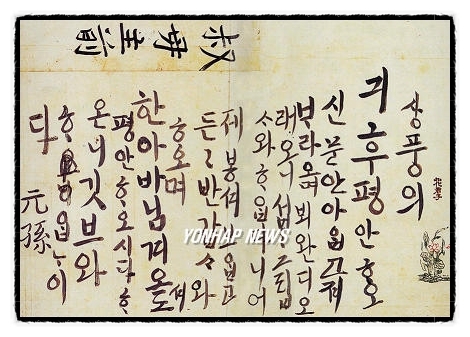 叔母主前
상풍의
긔후평안ᄒᆞ오
신문안아ᄋᆞᆸ고져
ᄇᆞ라오며뵈완디오
래오니섭〻그립
ᄉᆞ와ᄒᆞᄋᆞᆸ다니어
제봉셔보ᄋᆞᆸ고
든〻반갑ᄉᆞ와
ᄒᆞ오며
한아바님겨오셔도
평안ᄒᆞ오시다ᄒᆞ
온니깃브와
ᄒᆞᄋᆞᆸᄂᆞ이
다 元孫
YONHAP NEWS